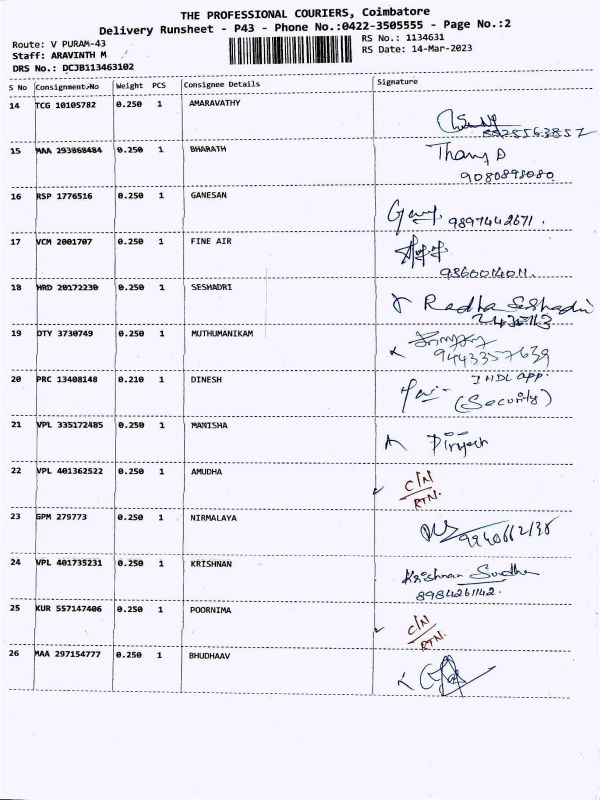 THE PROFESSIONAL COURIERS, Coimbatore
Delivery Runsheet - P43 - Phone No.:0422-3505555 - Page No.:2
Route: V PURAM-43
RS No.: 1134631
Staff: ARAVINTH M
RS Date: 14-Mar-2023
DRS No.: DCJB113463102
S No Consignment.No Weight PCS Consignee Details Signature
14 TCG 10105782 0.250 1 AMARAVATHY
8825563857
15 MAA 293868484 0.250 1 BHARATH
9080898080
16 RSP 1776516 0.250 1 GANESAN
9897442671.
17 VCM 2001707 0.250 1 FINE AIR
9860014011.
18 HRD 20172230 0.250 1 SESHADRI Radha Seshadri
19 DTY 3730749 0.250 1 MUTHUMANIKAM
9443357639
20 PRC 13408148 0.210 1 DINESH
(Security)
21 VPL 335172485 0.250 1 MANISHA
22 VPL 401362522 0.250 1 AMUDHA C/N
RTN.
23 GPM 279773 0.250 1 NIRMALAYA
24 VPL 401735231 0.250 1 KRISHNAN Krishnan
8984261142.
25 KUR 557147406 0.250 1 POORNIMA C/N
RTN.
26 MAA 297154777 0.250 1 BHUDHAAV